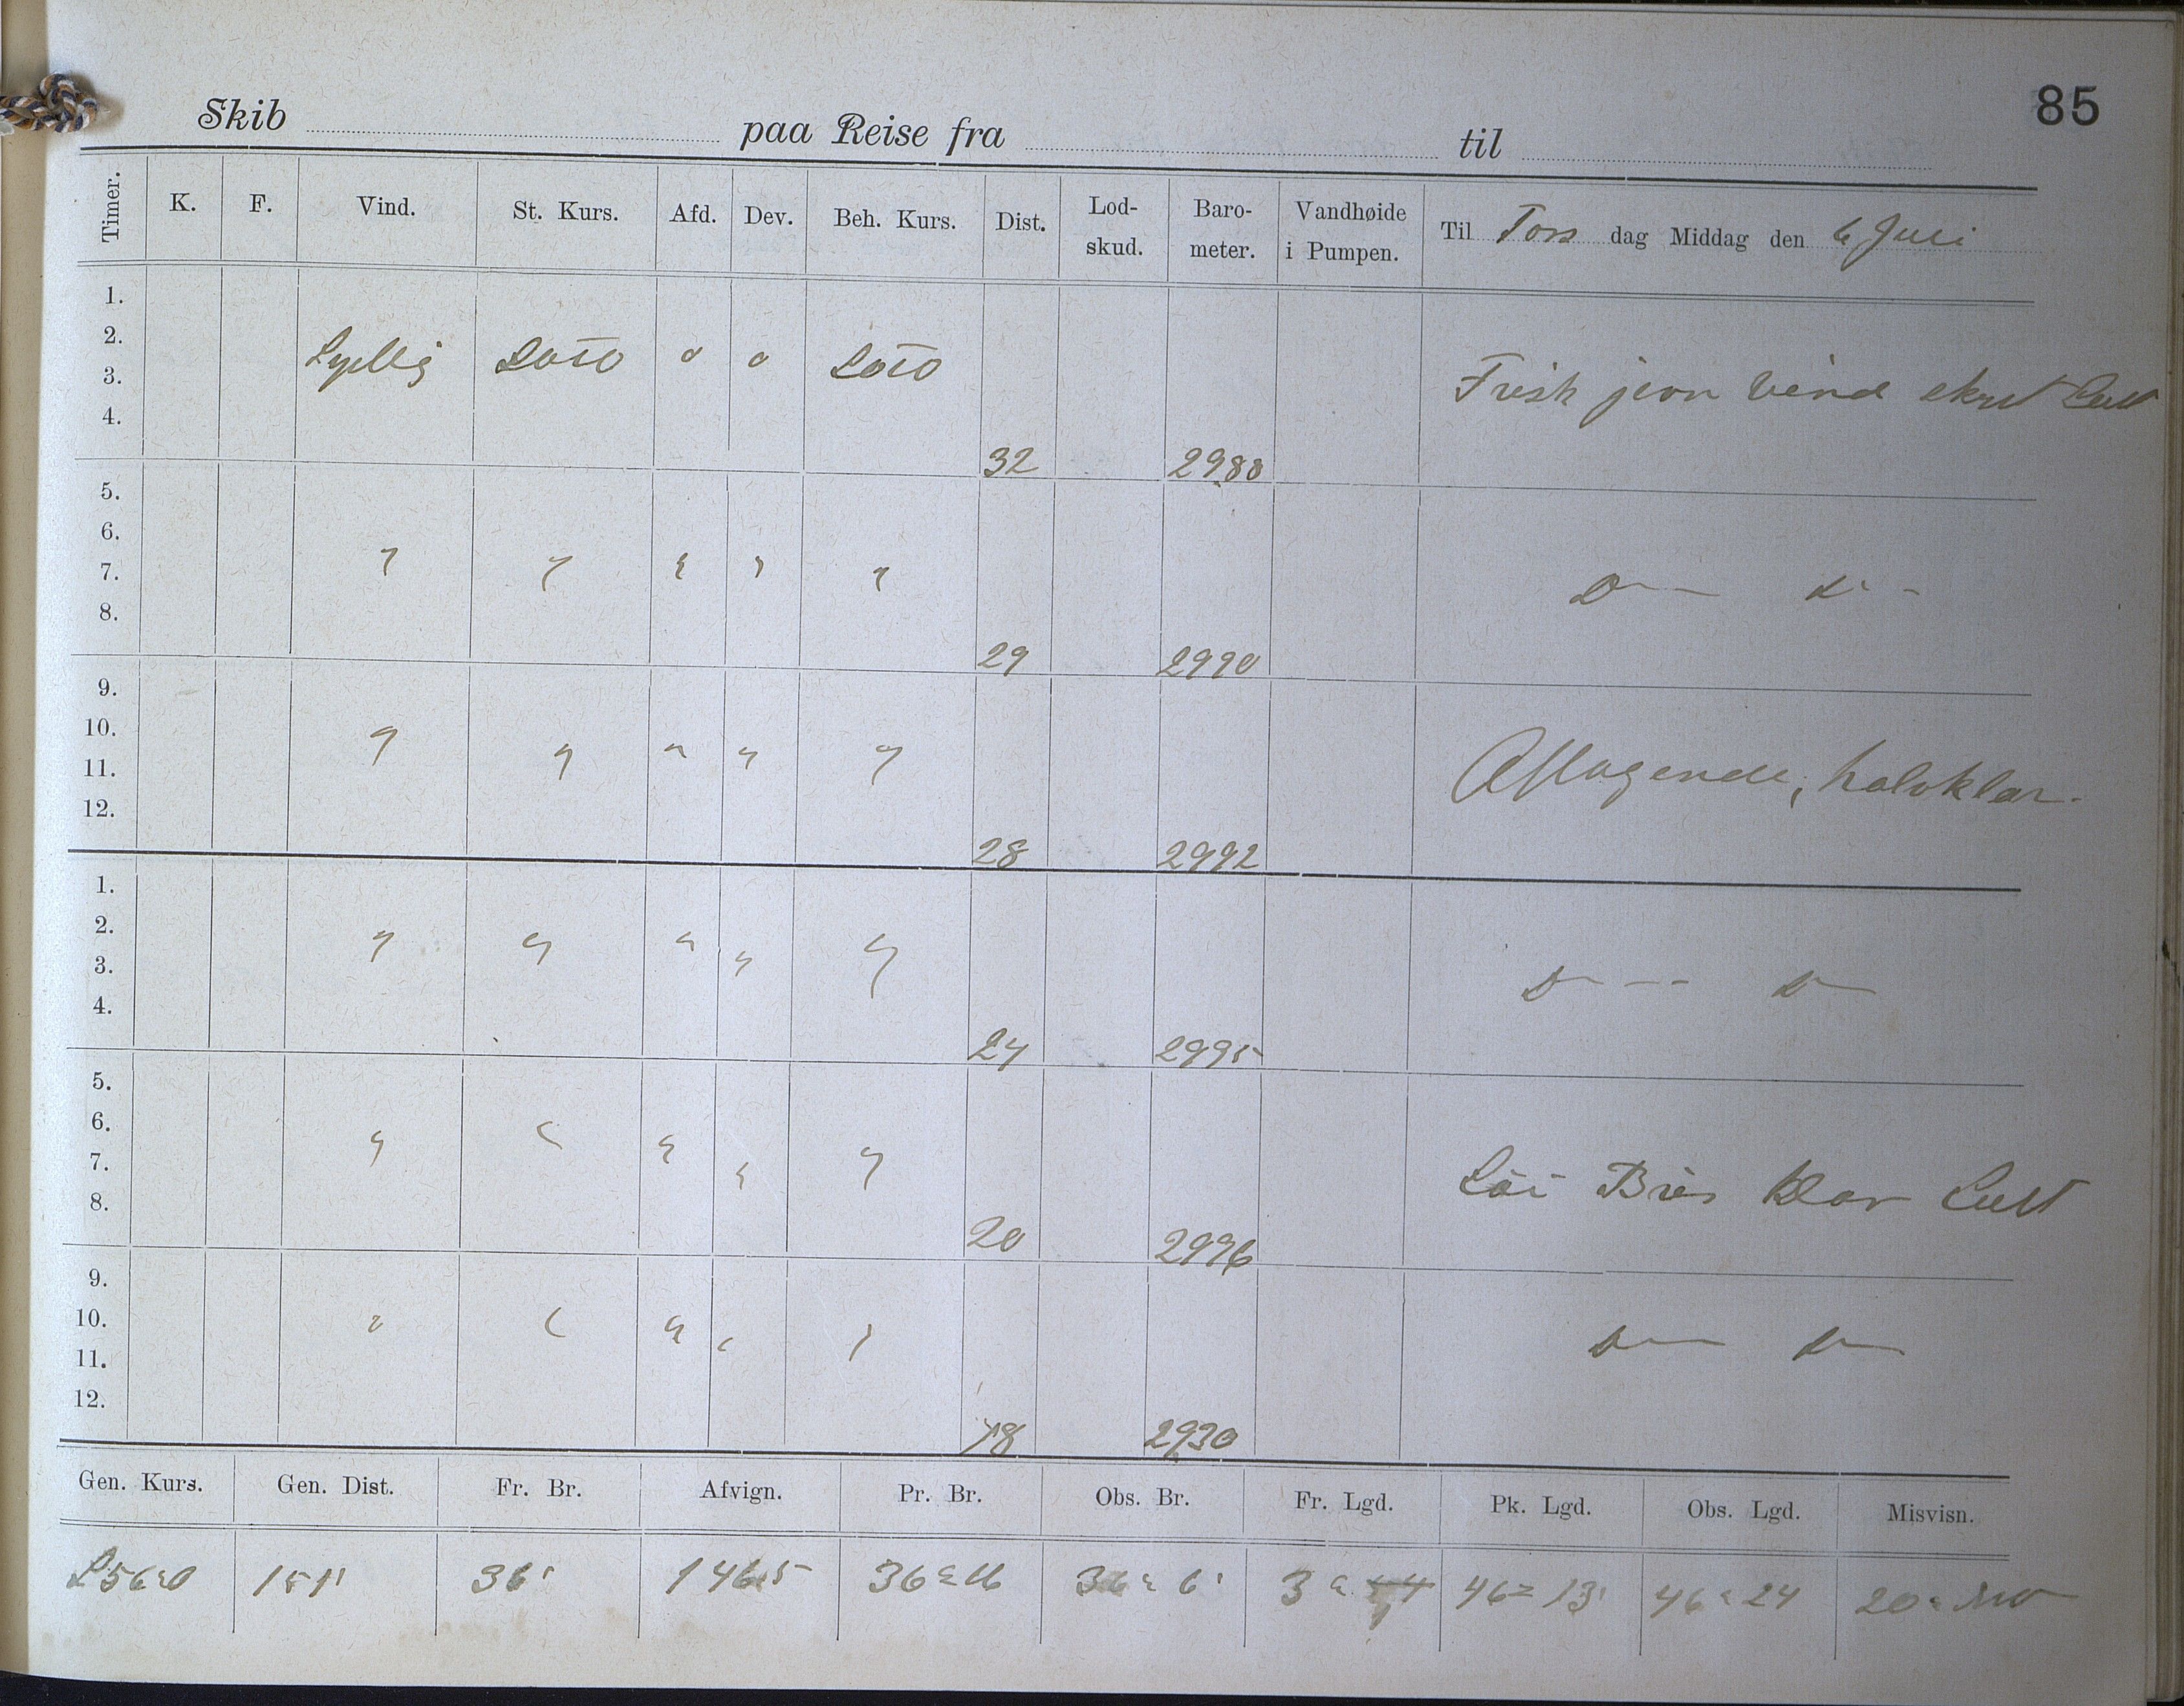 85
Skib paa Reise fra til
Timer. K. F. Vind. St. Kurs. Afd. Dev. Beh. Kurs. Dist. Lod-skud. Baro-meter. Vandhøide i Pumpen. Til Tors dag Middag den 6 Juli
1.
2.
3. Sydlig o o Frisk jevn Vind Luft
4.
32 2988
5.
6.
7. " " " " " D — D —
8.
29 2990
9.
10.
11. " " " " " Aftagende, halvklar.
12.
28 2992
1.
2.
3. " " " " " D — — D —
4.
24 2995
5.
6.
7. " " " " " Bris Klar Luft
8.
20 2996
9.
10.
11. " " " " " D — D —
12.
18 2930
Gen. Kurs. Gen. Dist. Fr. Br. Afvign. Pr. Br. Obs. Br. Fr. Lgd. Pk. Lgd. Obs. Lgd. Misvisn.
151' 36' 146.5 36° 16 36° 6' 3° 46° 13' 46° 24 20°